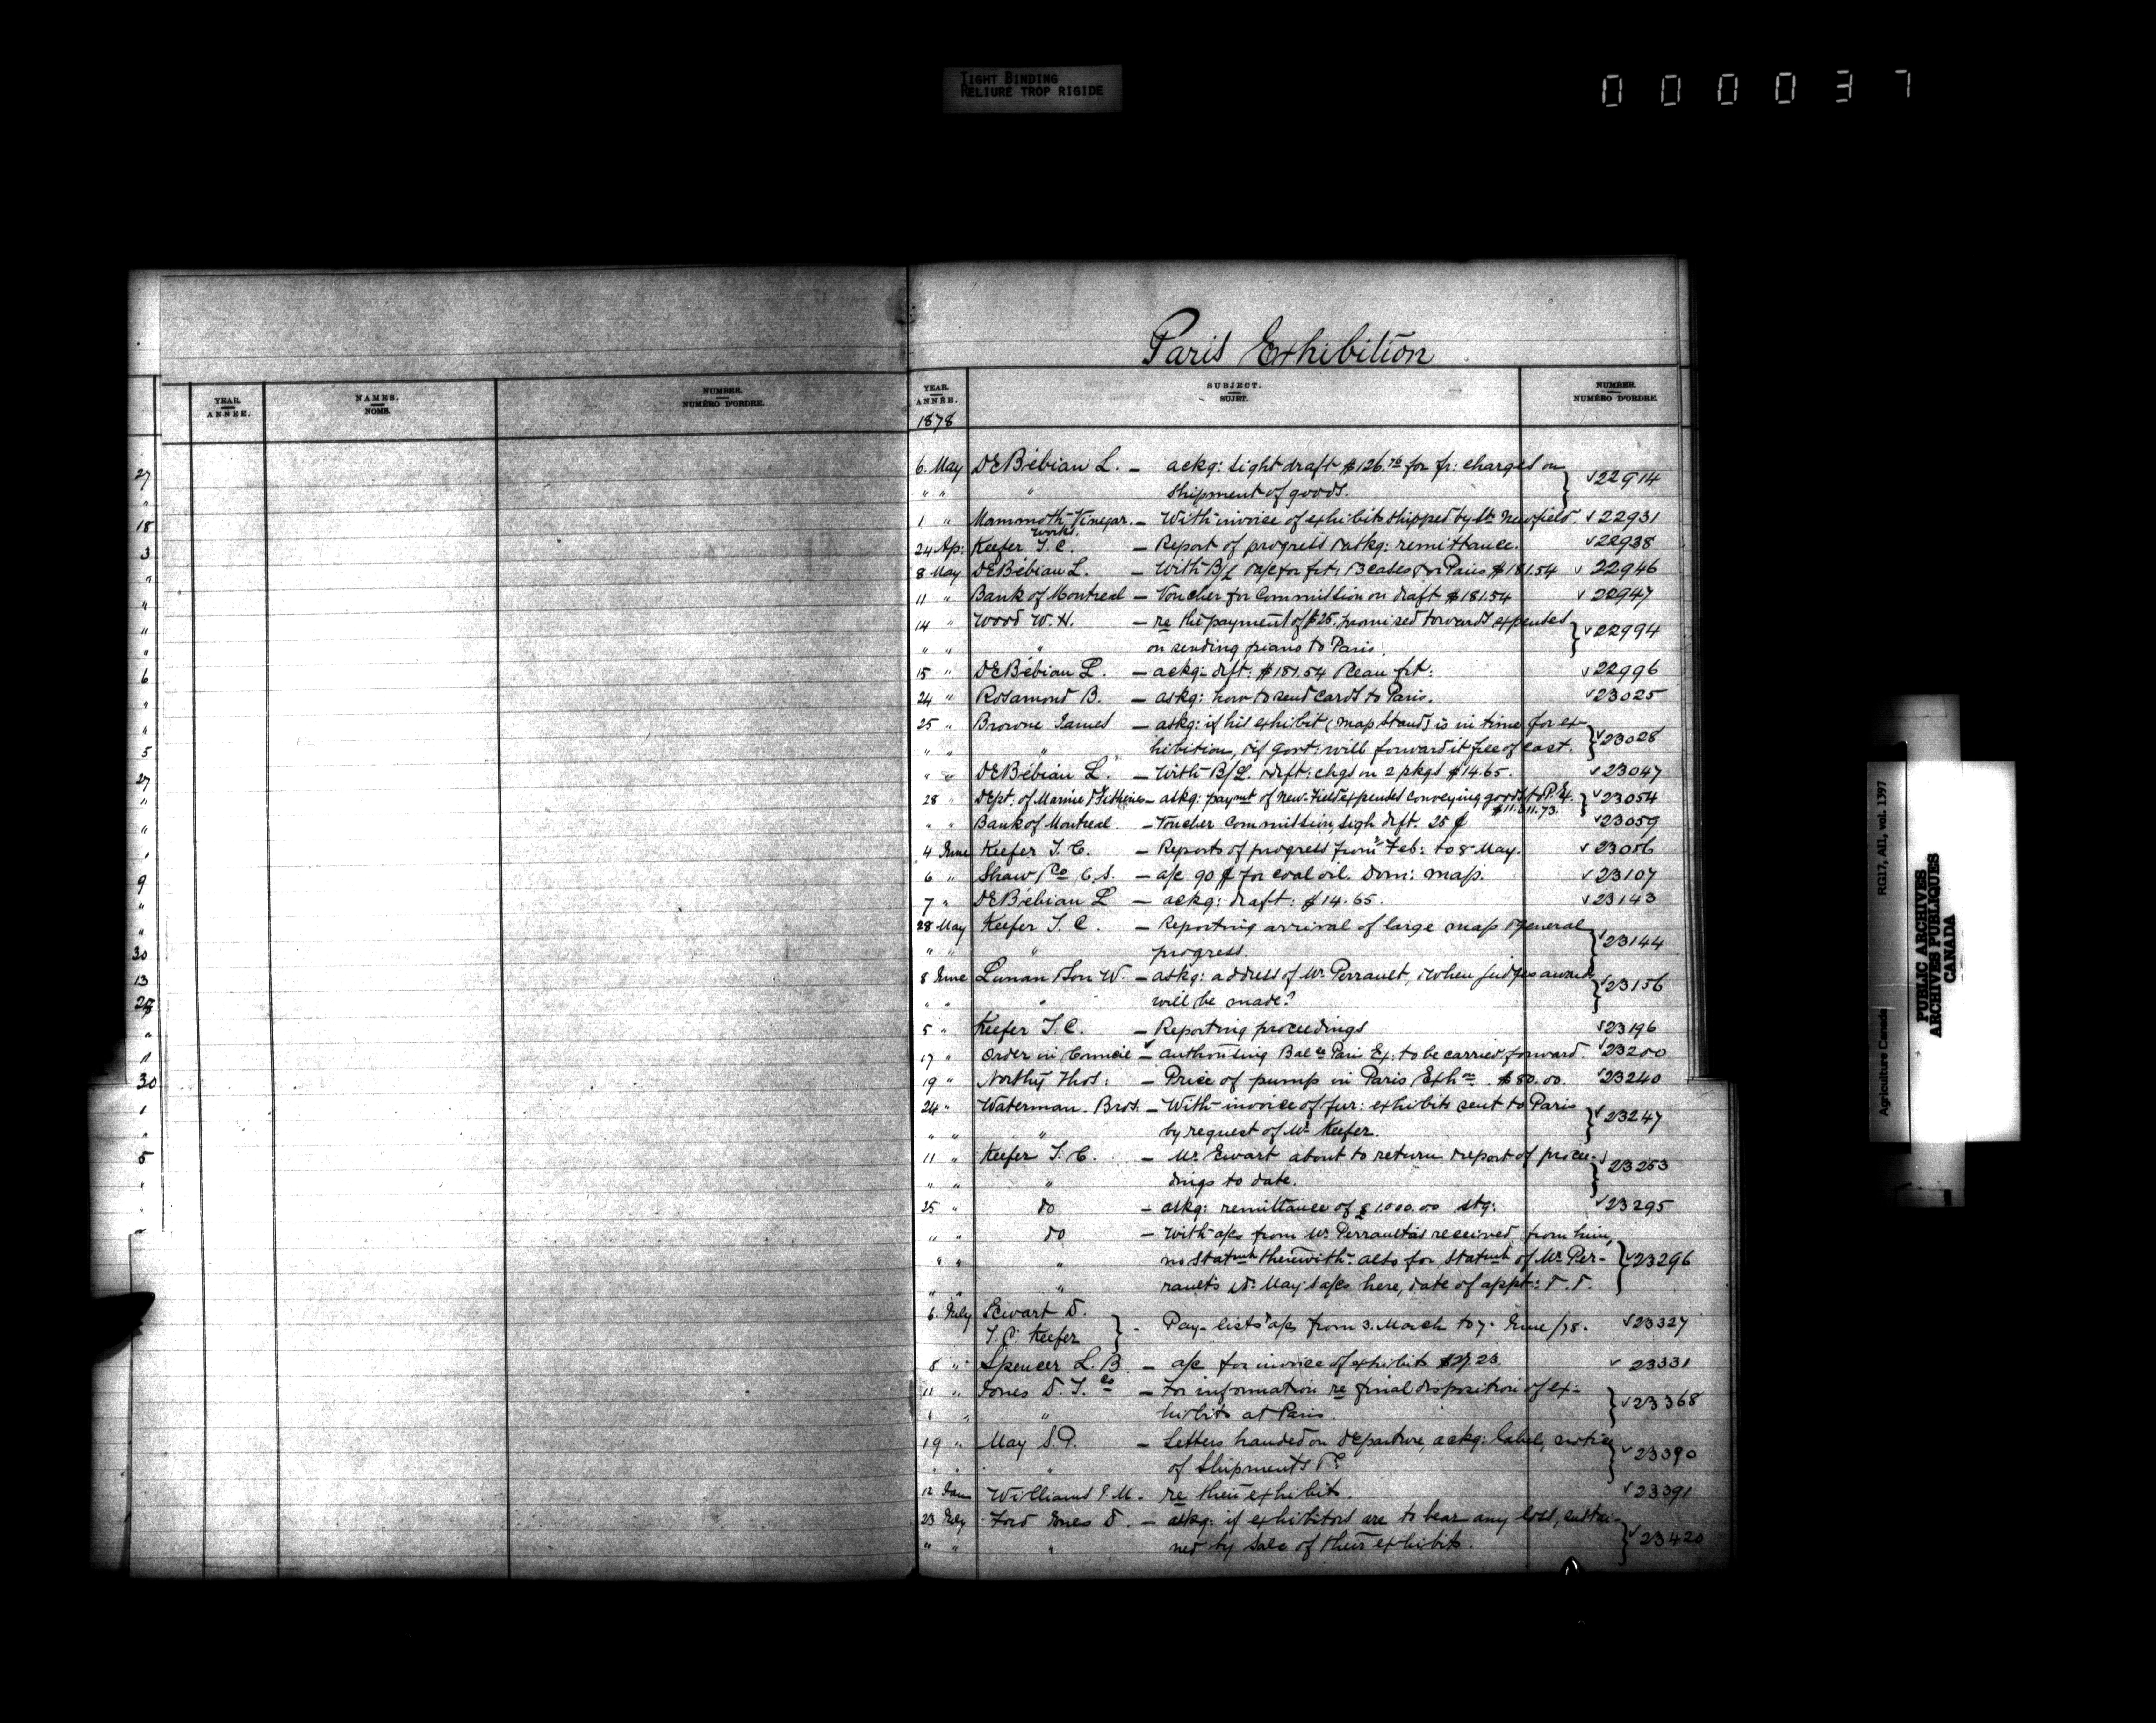 TIGHT BINDING
RELIURE TROP RIGIDE
000037
Paris Exhibition
YEAR. ANNÉE. NAMES. NOMS. NUMBER. NUMÉRO D'ORDRE.
YEAR. ANNÉE. SUBJECT. SUJET. NUMBER. NUMÉRO D'ORDRE.
1878
27
"
18
3
"
"
"
"
6
"
"
5
27
"
"
"
9
"
"
30
13
"
11
30
1
"
5
"
6. May DeBébian L. – ackg: sight draft $126.76 for fr: charges on
" " " shipment of goods. } √22914
1 " Mammoth Vinegar Works. – With invoice of exhibits shipped by Str Newfield. √22931
24 Ap: Keefer T. C. – Report of progress & askg: remittance. √22938
8 May DeBébian L. – With B/L & a/c for frt: 13 cases for Paris $181.54 √22946
11 " Bank of Montreal – Voucher for Commission on draft $181.54 √22947
14 " Wood W. H. – re the payment of $25. promised towards expenses
" " " on sending piano to Paris. } √22994
15 " DeBébian L. – ackg: dft: $181.54 Ocean frt: √22996
24 " Rosamond B. – askg: how to send cards to Paris. √23025
25 " Browne James – askg: if his exhibit (map stand) is in time for ex-
" " " hibition, & if govt: will forward it free of cost. } √23028
" " DeBébian L. – With B/L. & dft: chgs on 2 pkgs $14.65. √23047
28 " Dept: of Marine & Fisheries – askg: paymt of New-Field expenses conveying goods to P. Ex. $11.611.73. } √23054
" " Bank of Montreal. – Voucher Commission, sigh dft. 25 ¢ √23059
4 June Keefer T. C. – Reports of progress from Feb: to 8 May. √23056
6 " Shaw, & Co C. S. – a/c 90 ¢ for coal oil. Dom: map. √23107
7 " DeBébian L – ackg: draft: $14.65. √23143
28 May Keefer T. C. – Reporting arrival of large map & general
" " " progress } √23144
8 June Lunan & Son W. – askg: address of Mr Perrault, & when judges awards
" " " will be made? } √23156
5 " Keefer T. C. – Reporting proceedings √23196
17 " Order in Council – authorising Balce Paris Ex: to be carried forward. √23200
19 " Northy Thos: – Price of pump in Paris Exhon. $80.00. √23240
24 " Waterman Bros. – With invoice of fur: exhibits sent to Paris
" " " by request of Mr Keefer. } √23247
11 " Keefer T. C. – Mr. Ewart about to return & report of procee-
" " " dings to date. } √23253
25 " do – askg: remittance of £1.000.00 stg: √23295
" " do – With a/cs from Mr Perrault as received from him,
" " " no statmts therewith. also for statmts of Mr Per-
" " " raults & Dr May's a/cs here, & date of appt: &. &. } √23296
6. July Sewart D.
T. C. Keefer } - Pay-lists & a/cs from 3. March to 7- June /78. √23327
8 " Spencer L. B – a/c for invoice of exhibits $27.23. √23331
11 " Jones D. F. Co – For information re final disposition of ex-
" " " hibits at Paris. } √23368
19 " May S. P. – Letters handed on departure, ackg: label, & notice
" " " of shipments &c } √23390
12 Williams – re their exhibits. √23391
23 July Ford Jones D. – askg: if exhibitors are to bear any loss, sustai-
" " " ned by sale of their exhibits. } √23420
RG17, AII, vol. 1397
Agriculture Canada
PUBLIC ARCHIVES
ARCHIVES PUBLIQUES
CANADA